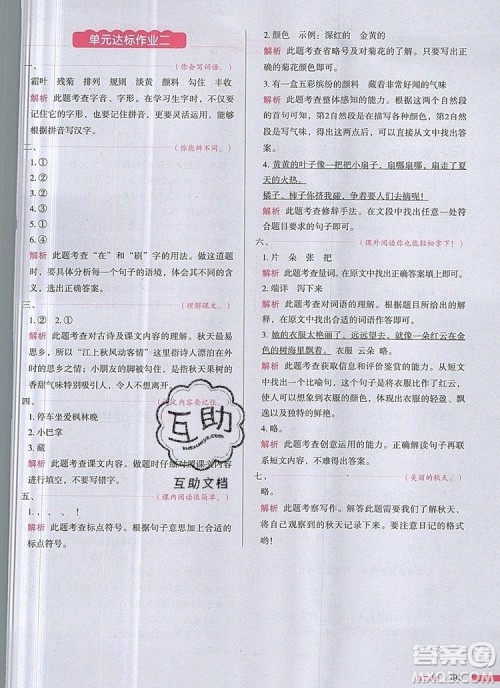 单元达标作业二
一、（你会写词语。）
霜叶 残菊 排列 规则 淡黄 颜料 勾住 丰收
解析 此题考查字音、字形。在学习生字时，不仅要
记住它的字形，也要记住拼音，更要灵活运用，能够
根据拼音写汉字。
二、（你能辨不同。）
1. ①
2. ②
3. ③
4. ①
5. ②
6. ④
解析 此题考查“在”和“刷”字的用法。做题时，
要一一品味每一个句子的语境，体味不同的意思，从
而选出正确答案。
三、（理解课文。）
1. ② 2. ①
解析 此题考查对古诗及课文内容的理解。秋天最易
思乡，所以“江上秋风动客情”这首诗写诗人漂泊在外
的思乡之情。小朋友的脚被勾住，是因为各种水果的
香甜气味特别吸引人，令小朋友不想离开。
四、（课文内容要记住。）
1. 停车坐爱枫林晚
2. 小巴掌
3. 藏
解析 此题考查课文内容。做题时仔细对照课文内容，
不要写错字。
五、（课内阅读很简单。）
1. ， 。 ， 。
解析 此题考查标点符号。根据句子意思加上合适的
标点符号。
2. 颜色 示例：深红的 金黄的
解析 此题考查省略号及对菊花的描写。根据对菊花
的了解，写出菊花其他的颜色即可。
3. 有一盒五彩缤纷的颜料 藏着非常好闻的气味
解析 此题考查整体感知的能力。根据这两个自然段
的首句可以得出第1自然段是在描写各种颜色，第2自
然段是写气味，所以可以从文中找出答案。
4. 黄黄的叶子像一把把小扇子，扇哪扇哪，扇走了夏天
的炎热。
橘子、柿子你挤我碰，争着要人们去摘呢！
解析 此题考查修辞手法。在文段中找出相对应的符合
题目要求的句子即可。
六、（课外阅读你也能轻松拿下！）
1. 片 朵 张 把
解析 此题考查量词。在原文中找出正确答案填上即可。
2. 端详 泻下来
解析 此题考查对词语的理解。根据解释的意思，在
原文中找出比较合适的词语作答即可。
3. 她的衣服是最美丽的，远远望去，就像一朵红云在金
色的树海里飘着。 衣服 云朵 略
解析 此题考查信息的评价鉴赏的能力。从文中找出
相关句子，可以得出是把衣服比作云朵。体现出衣服
飘逸、以及独特的鲜艳。
4. 略
解析 此题考查创意运用的能力。要仔细阅读短文，
了解短文内容，再联系实际写句子。
七、（美丽的秋天。）
略
解析 此题考查写作。答此题时，我们先要了解秋天，
将自己观察到的秋天记录下来。要注意日记的格式
哟！
互助
互助文档
答案圈